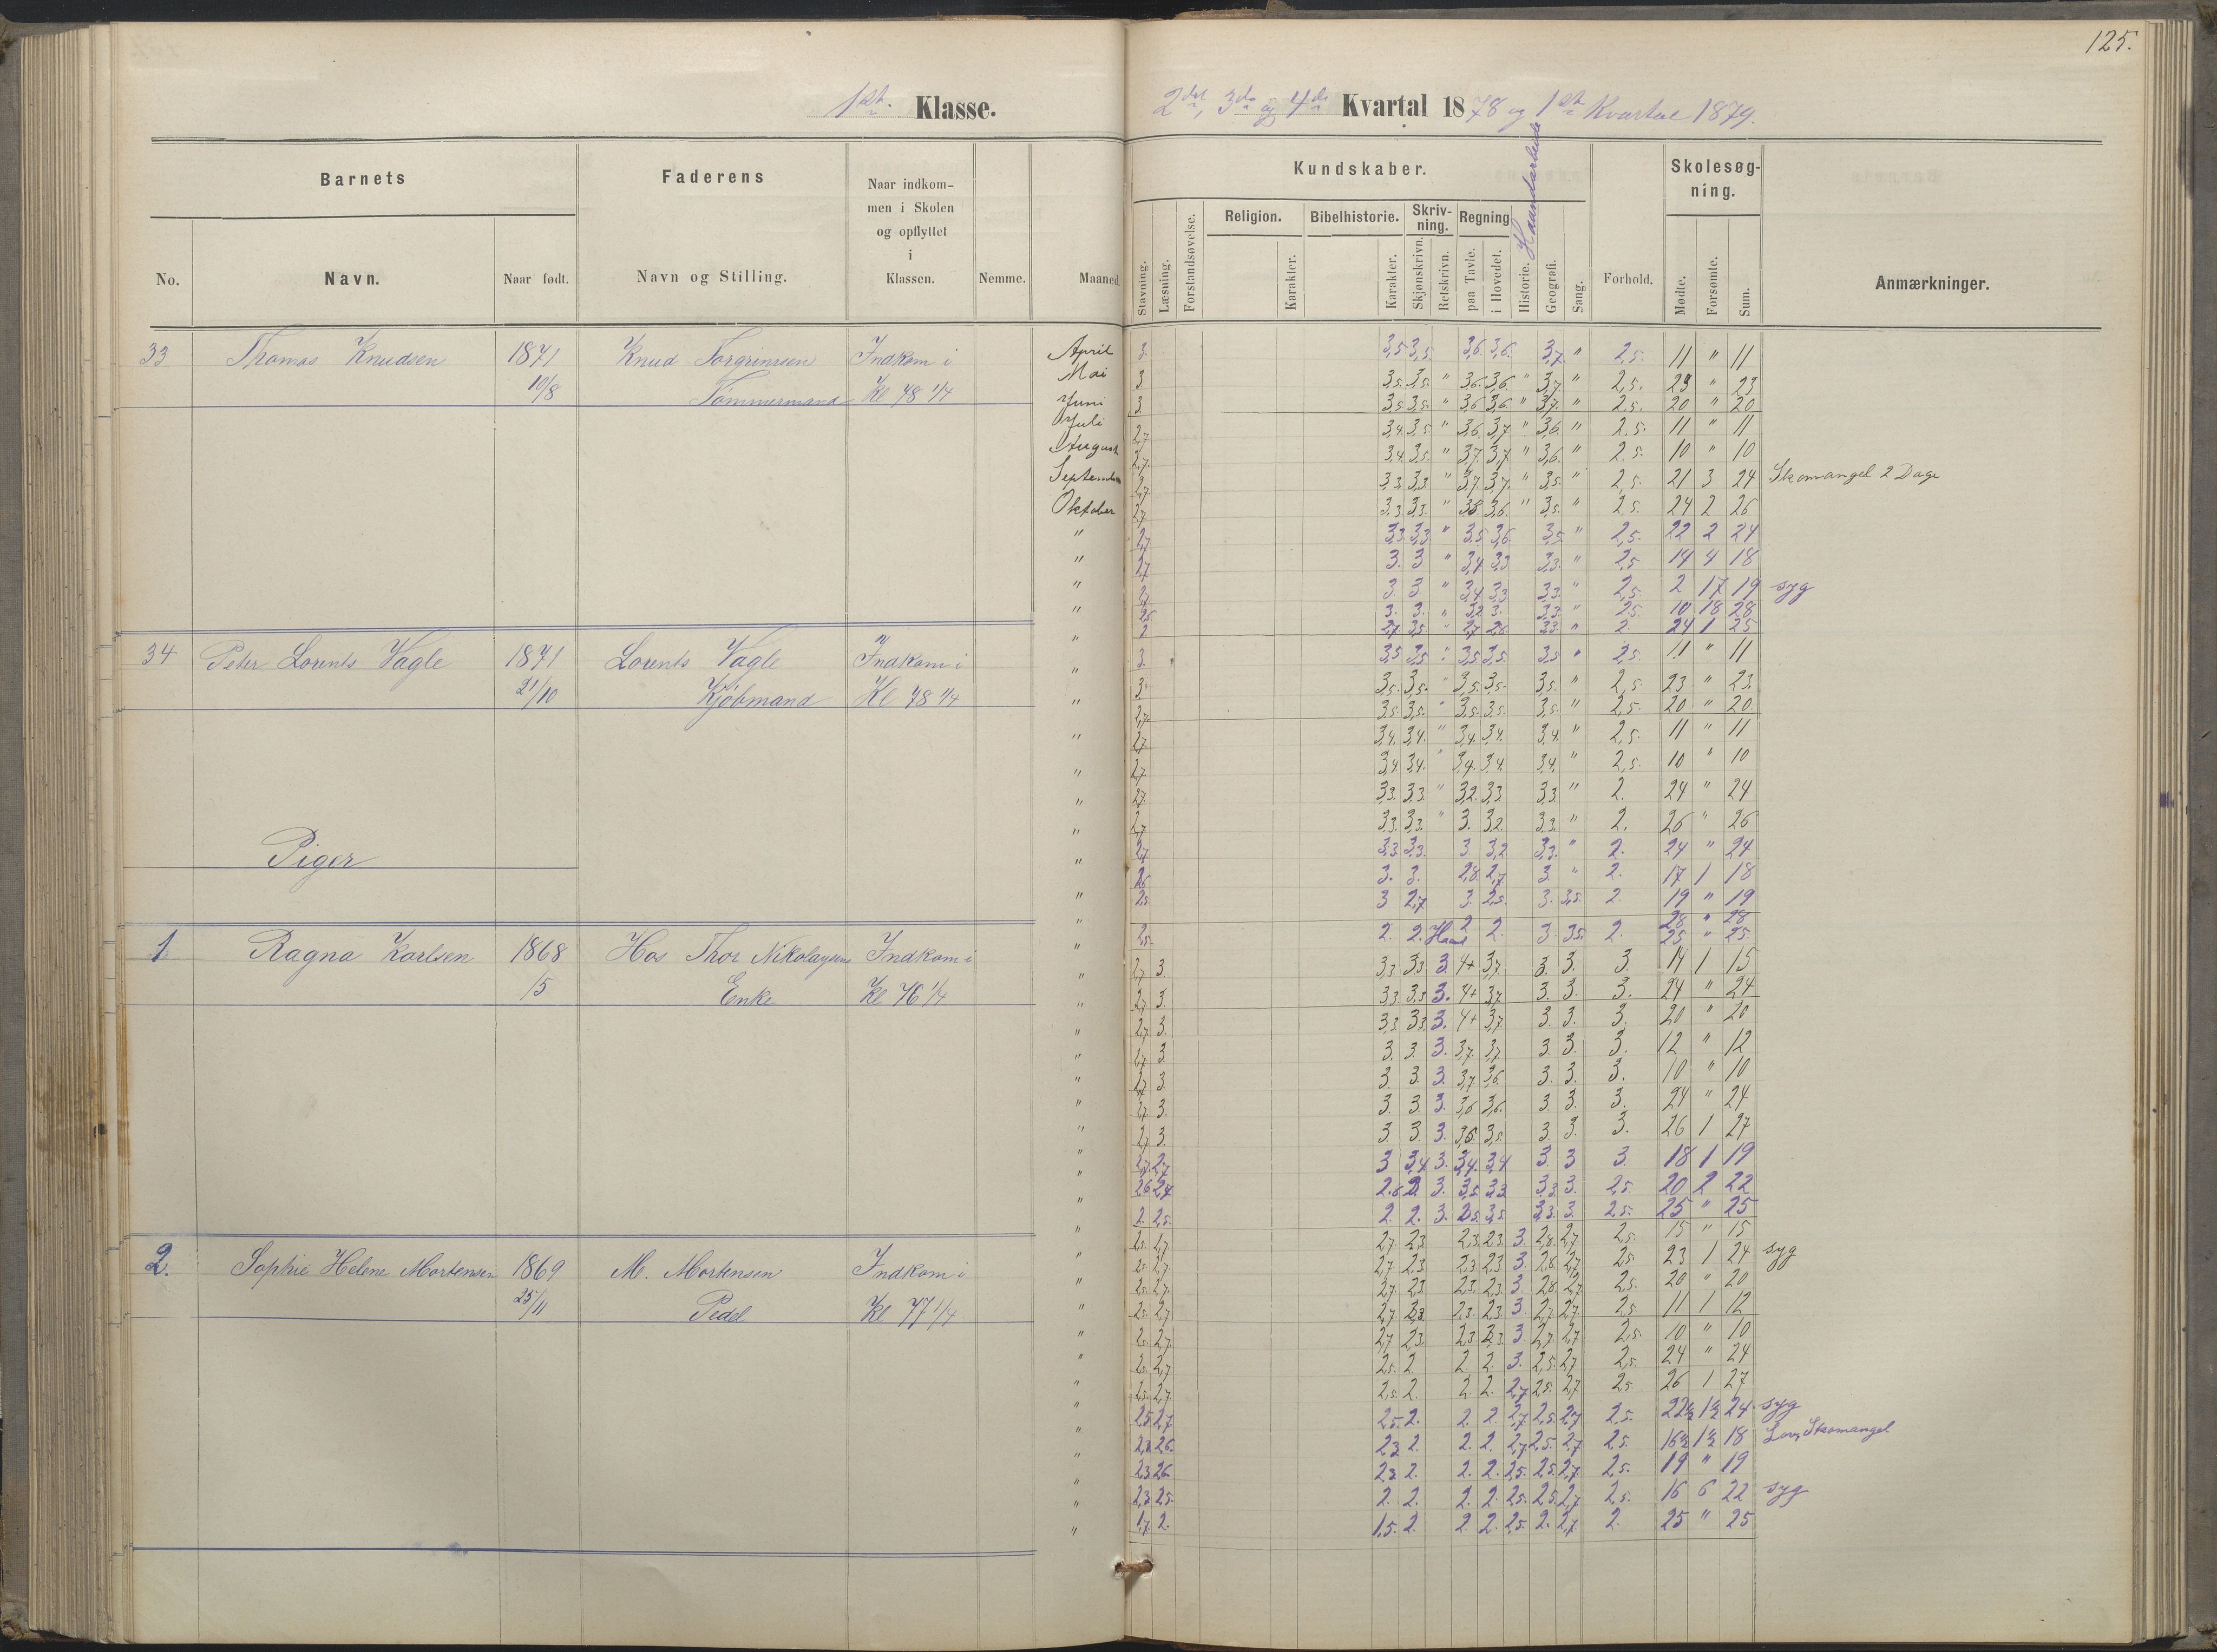 125.
1ste Klasse.
2det, 3die og 4de Kvartal 1878 og 1ste Kvartal 1879.
Barnets
Faderens
Naar indkommen i Skolen og opflyttet i Klassen.
Nemme.
Maaned.
No.
Navn.
Naar født.
Navn og Stilling.
Kundskaber.
Stavning.
Læsning.
Forstandsøvelse.
Religion.
Karakter.
Bibelhistorie.
Karakter.
Skrivning.
Skjønskrivn.
Retskrivn.
Regning
paa Tavle.
i Hovedet.
Historie.
Haandarbeide
Geografi.
Sang.
Forhold.
Skolesøgning.
Mødte.
Forsømte.
Sum.
Anmærkninger.
33 Thomas Knudsen 1871 Knud Torgrimsen Indkom i
10/8 Tømmermand Kl 78 1/4
April 3. 3,5 3,5. 3,6. 3,6. 3,7. " 2,5. 11 " 11
Mai 3 3,5. 3,5. " 3,6. 3,6. " 3,7. " 2,5. 23 " 23
Juni 3. 3,5 3,5. " 3,6 3,6. " 3,7. " 2,5. 20 " 20
Juli 2,7 3,4. 3,5 " 3,6. 3,7 " 3,6. " 2,5. 11 " 11
August 2,7. 3,4. 3,5. " 3,7. 3,7 " 3,6. " 2,5. 10 " 10
September 2,7. 3,3. 3,3. " 3,7. 3,7. " 3,5. " 2,5. 21 3 24 Skomangel 2 Dage
Oktober 2,7 3,3. 3,3. " 3,6. " 3,5. " 2,5. 24 2 26
" 2,7 3,3. 3,3 " 3,5 3,6. 3,5 " 2,5. 22 2 24
" 2,7. 3. 3 " 3,4. 3,3 3,3. " 2,5 14 4 18
" 2,7 3. 3 " 3,4 3,3 3,3. " 2,5. 2 17 19 syg
" 2,5 3. 3. " 3,2 3. 3,3. " 2,5 10 18 28
" 2 2,7 3,5 " 2,7 2,8 3,3 " 2 24 1 25
34 Peter Lorents Vagle 1871 Lorents Vagle Indkom i
21/10 Kjøbmand Kl 78 1/4
3. 3,5 3,5 " 3,5 3,5. 3,5 " 2,5. 11 " 11
3. 3,5. 3,5. " 3,5. 3,5. 3,5. " 2,5 23 " 23.
2,7. 3,5. 3,5. " 3,5. 3,5. 3,5. " 2,5. 20 " 20.
2,7 3,4. 3,4. " 3,4. 3,4. 3,4. " 2,5. 11 " 11
2,7 3,4. 3,4. " 3,4. 3,4. 3,4. " 2,5. 10 " 10
2,7. 3,3. 3,3 " 3,2. 3,3 3,3 " 2. 24 " 24
2,7 3,3. 3,3. " 3. 3,2. 3,3. " 2. 26 " 26
2,7 3,3. 3,3. 3 3,2 3,3. " 2. 24 " 24
2,6 3. 3. 2,8. 2,7 3. " 2. 17 1 18
2,5. 3 2,7 3. 2,5. 3. 3,5. 2. 19 " 19
28 " 28
2,5. 2. 2. Haand 2 2. 3 3,5. 2. 25 " 25
Piger
1 Ragna Karlsen 1868 Hos Thor Nikolaysens Indkom i
/5 Enke Kl 76 1/4
2,7 3 3,3. 3,3 3. 4+ 3,7 3. 3. 3. 14 1 15
2,7 3. 3,3 3,3 3. 4+ 3,7 3. 3. 3. 24 " 24
2,7 3. 3,3 3,3. 3. 4+ 3,7. 3. 3. 3. 20 " 20
2,7 3 3. 3. 3. 3,7. 3,7 3. 3. 3. 12 " 12
2,7 3. 3 3. 3. 3,7 3,6. 3. 3. 3. 10 " 10
2,7. 3. 3. 3. 3. 3,6 3,6. 3. 3. 3. 24 " 24
2,7 3. 3. 3. 3. 3,6. 3,5. 3. 3. 3. 26 1 27
2,7. 2,7 3 3,4 3. 3,4. 3,4 3. 3 3. 18 1 19
2,6 2,4 2,8 3. 3,5 3,3 3,3. 3. 2,5. 20 2 22
2. 2,5. 2 2. 3. 3,5 3,3. 3. 2,5. 25 " 25
2. Sophie Helene Mortensen 1869 M. Mortensen Indkom i
25/11 Pedel Kl 77 1/4
2,5. 2,7 2,7 2,3 2,3. 2,3. 3. 2,8. 2,7 2,5. 15 " 15
2,5. 2,7. 2,7 2,3 2,3 2,3 3. 2,8. 2,7 2,5 23 1 24 syg
2,5. 2,7. 2,7. 2,3 2,3. 2,3 3. 2,8. 2,7 2,5. 20 " 20
2,5. 2,7 2,7 2,3 2,3. 2,3 3. 2,7. 2,7. 2,5. 11 1 12
2,5. 2,7. 2,7 2,3. 2,3 2,3. 3. 2,7. 2,7 2,5. 10 " 10
2,5. 2,7 2,5. 2 2 2. 3. 2,5 2,7. 2,5. 24 " 24
2,5. 2,7 2,5. 2. 2. 2. 2,7 2,5. 2,7 2,5. 26 1 27
2,5 2,7 2,5. 2. 2. 2. 2,7 2,5 2,7 2,5. 22½ 1½ 24. syg
2,6. 2,3 2. 2. 2. 2,7 2,5. 2,7 2,5. 16½ 1½ 18 Lov, Skomangel
2,3 2,6 2,3. 2. 2. 2. 2,5. 2,5. 2,7. 2,5. 19 " 19
2,3 2,5. 2. 2. 2. 2. 2,5. 2,5. 2,7 2,5. 16 6 22 syg
1,7. 2. 1,5. 2. 2. 2. 2,5. 2. 2,7. 2. 25 " 25